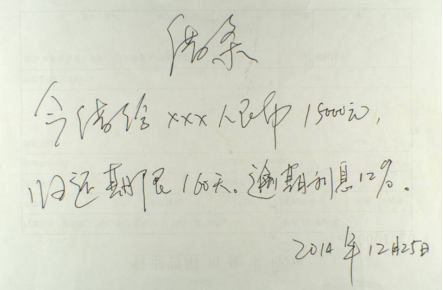 借条
今借给xxx人民币15000元，
归还期限160天。逾期利息12%。
2014年12月25日